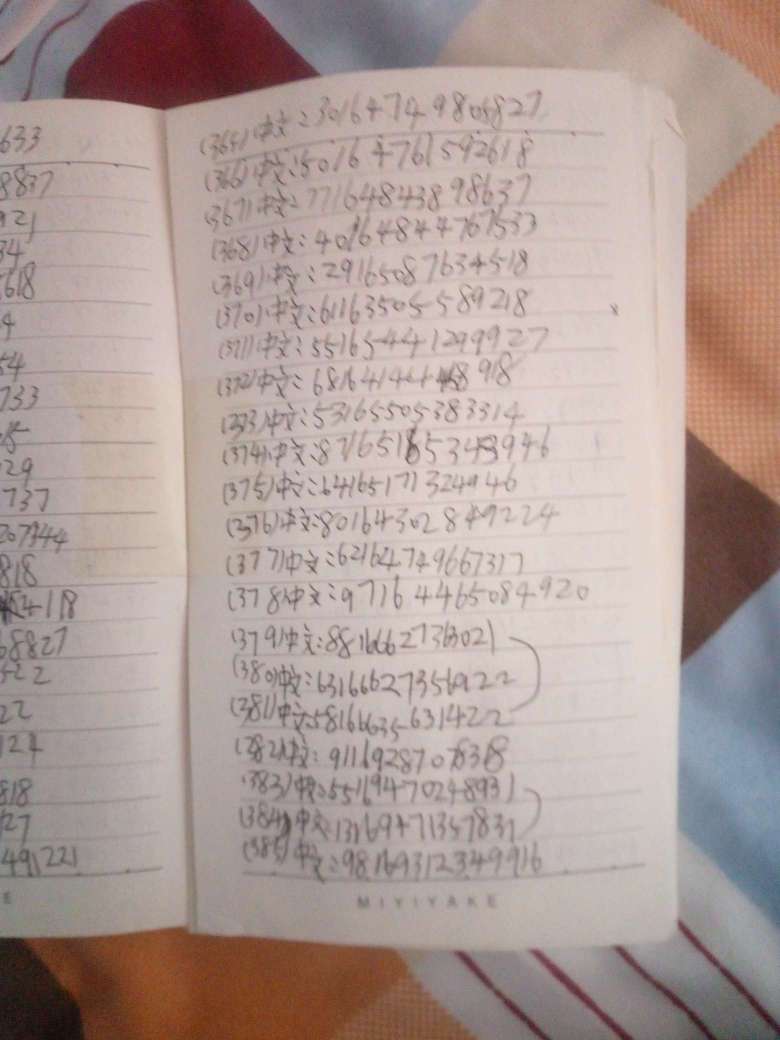 633
8837
921
34
5618
4
54
733
29
737
207944
818
54118
68827
522
22
124
818
27
491221
(365)中文:3016474980S827
(366)中文:50164761592618
(367)中文:77164843898637
(368)中文:40164844767533
(369)中文:29165087634518
(370)中文:61163505589218
(371)中文:55165441299927
(372)中文:
(373)中文:53165505383314
(374)中文:
(375)中文:64165171324946
(376)中文:80164302849224
(377)中文:62164749667317
(378)中文:97164465084920
(379)中文:88166627363021
(380)中文:63166627356922
(381)中文:58166635631422
(382)中文:
(383)中文:55169470248931
(384)中文:13169471357831
(385)中文:98169312349916
MIYIYAKE